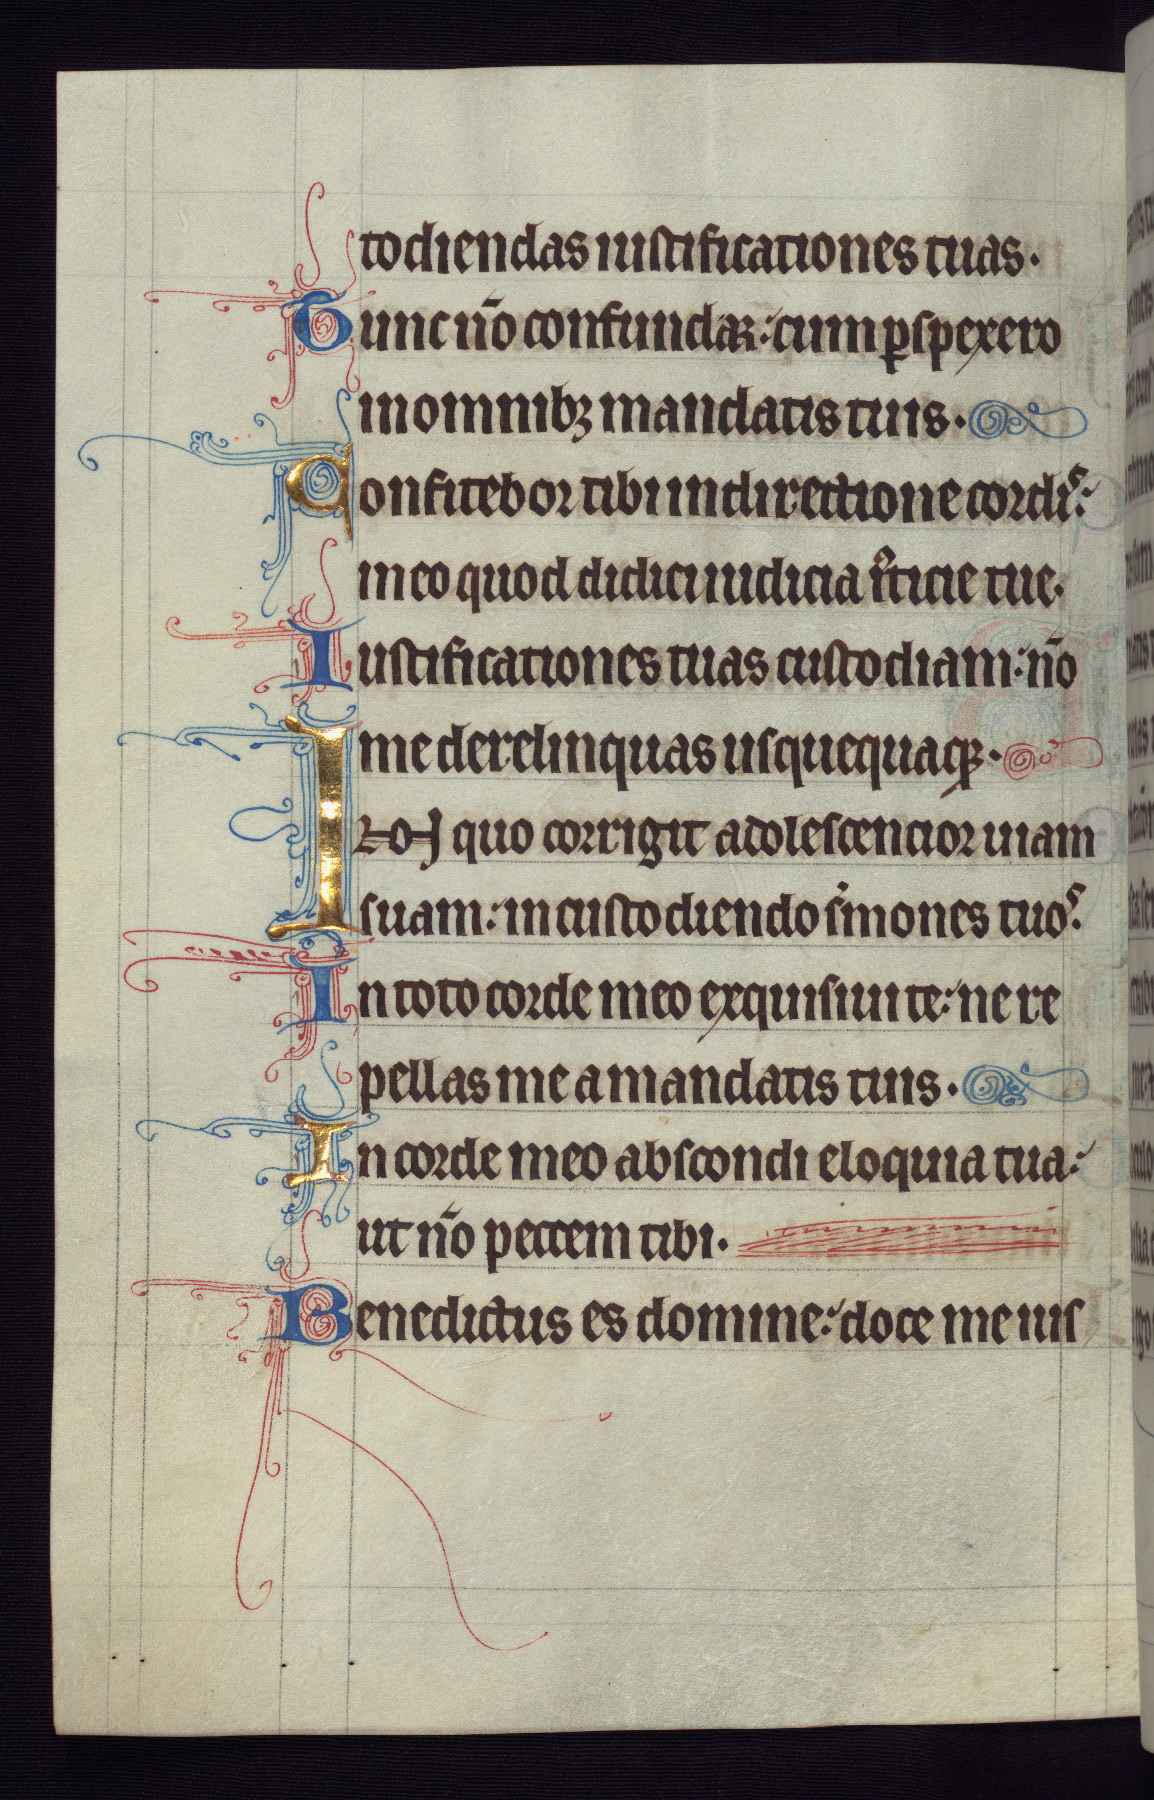 todiendas iustificationes tuas·
Tunc nō confundar: cum ꝑspexero
in omnibꝫ mandatis tuis·
Confitebor tibi in directione cordis:
meo quod didici iudicia iᷤticie tue·
Iustificationes tuas custodiam: nō
me derelinquas usquequaqꝫ·
In quo corrigit adolescencior uiam
suam: in custodiendo s̉mones tuos:
In toto corde meo exquisiui te: ne re
pellas me a mandatis tuis·
In corde meo abscondi eloquia tua:
ut nō peccem tibi·
Benedictus es domine: doce me ius